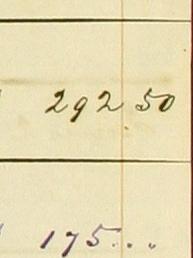 292 50
175...